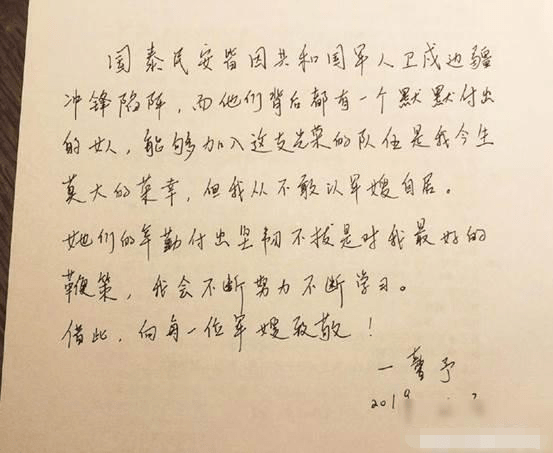 国泰民安皆因共和国军人卫戍边疆
冲锋陷阵，而他们背后都有一个默默付出
的女人，能够加入这支光荣的队伍是我今生
莫大的荣幸，但我从不敢以军嫂自居。
她们的辛勤付出坚韧不拔是对我最好的
鞭策，我会不断努力不断学习。
借此，向每一位军嫂致敬！
一馨予
2019